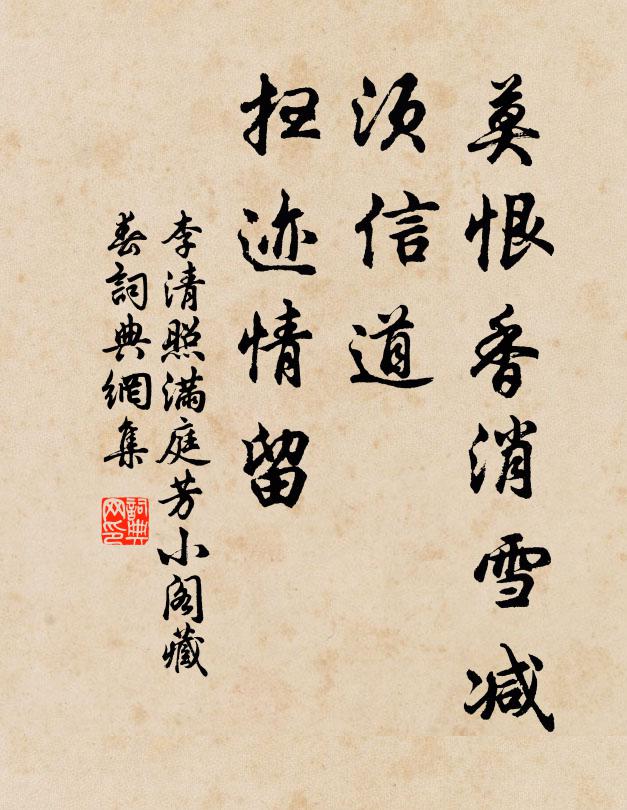 莫恨香消雪减
须信道
扫迹情留
李清照满庭芳小阁藏
春词典網集
詞典
网印